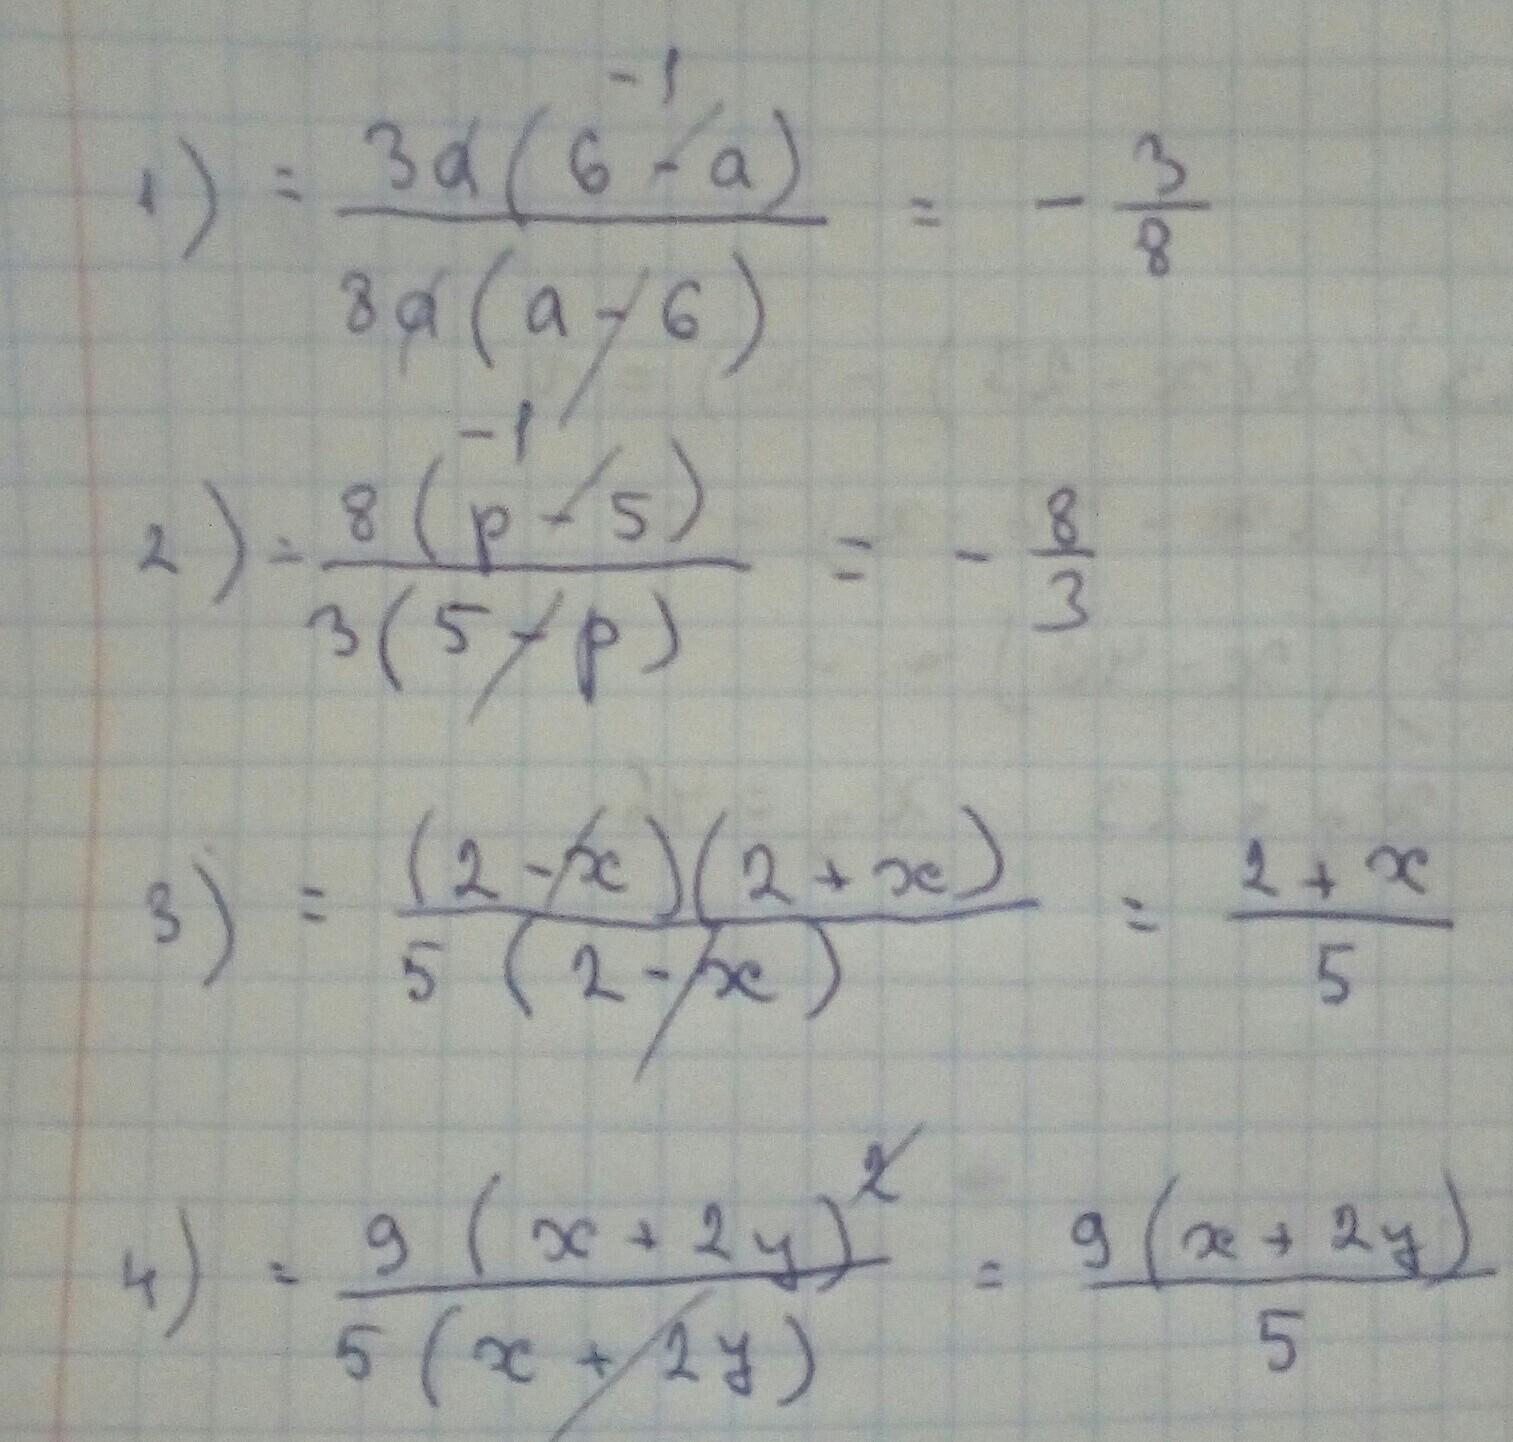 1) = 3a(6-a)^-1 / 8a(a-6) = - 3/8
2) = 8(p-5)^-1 / 3(5-p) = - 8/3
3) = (2-x)(2+x) / 5(2-x) = 2+x / 5
4) = 9(x+2y)^2 / 5(x+2y) = 9(x+2y) / 5